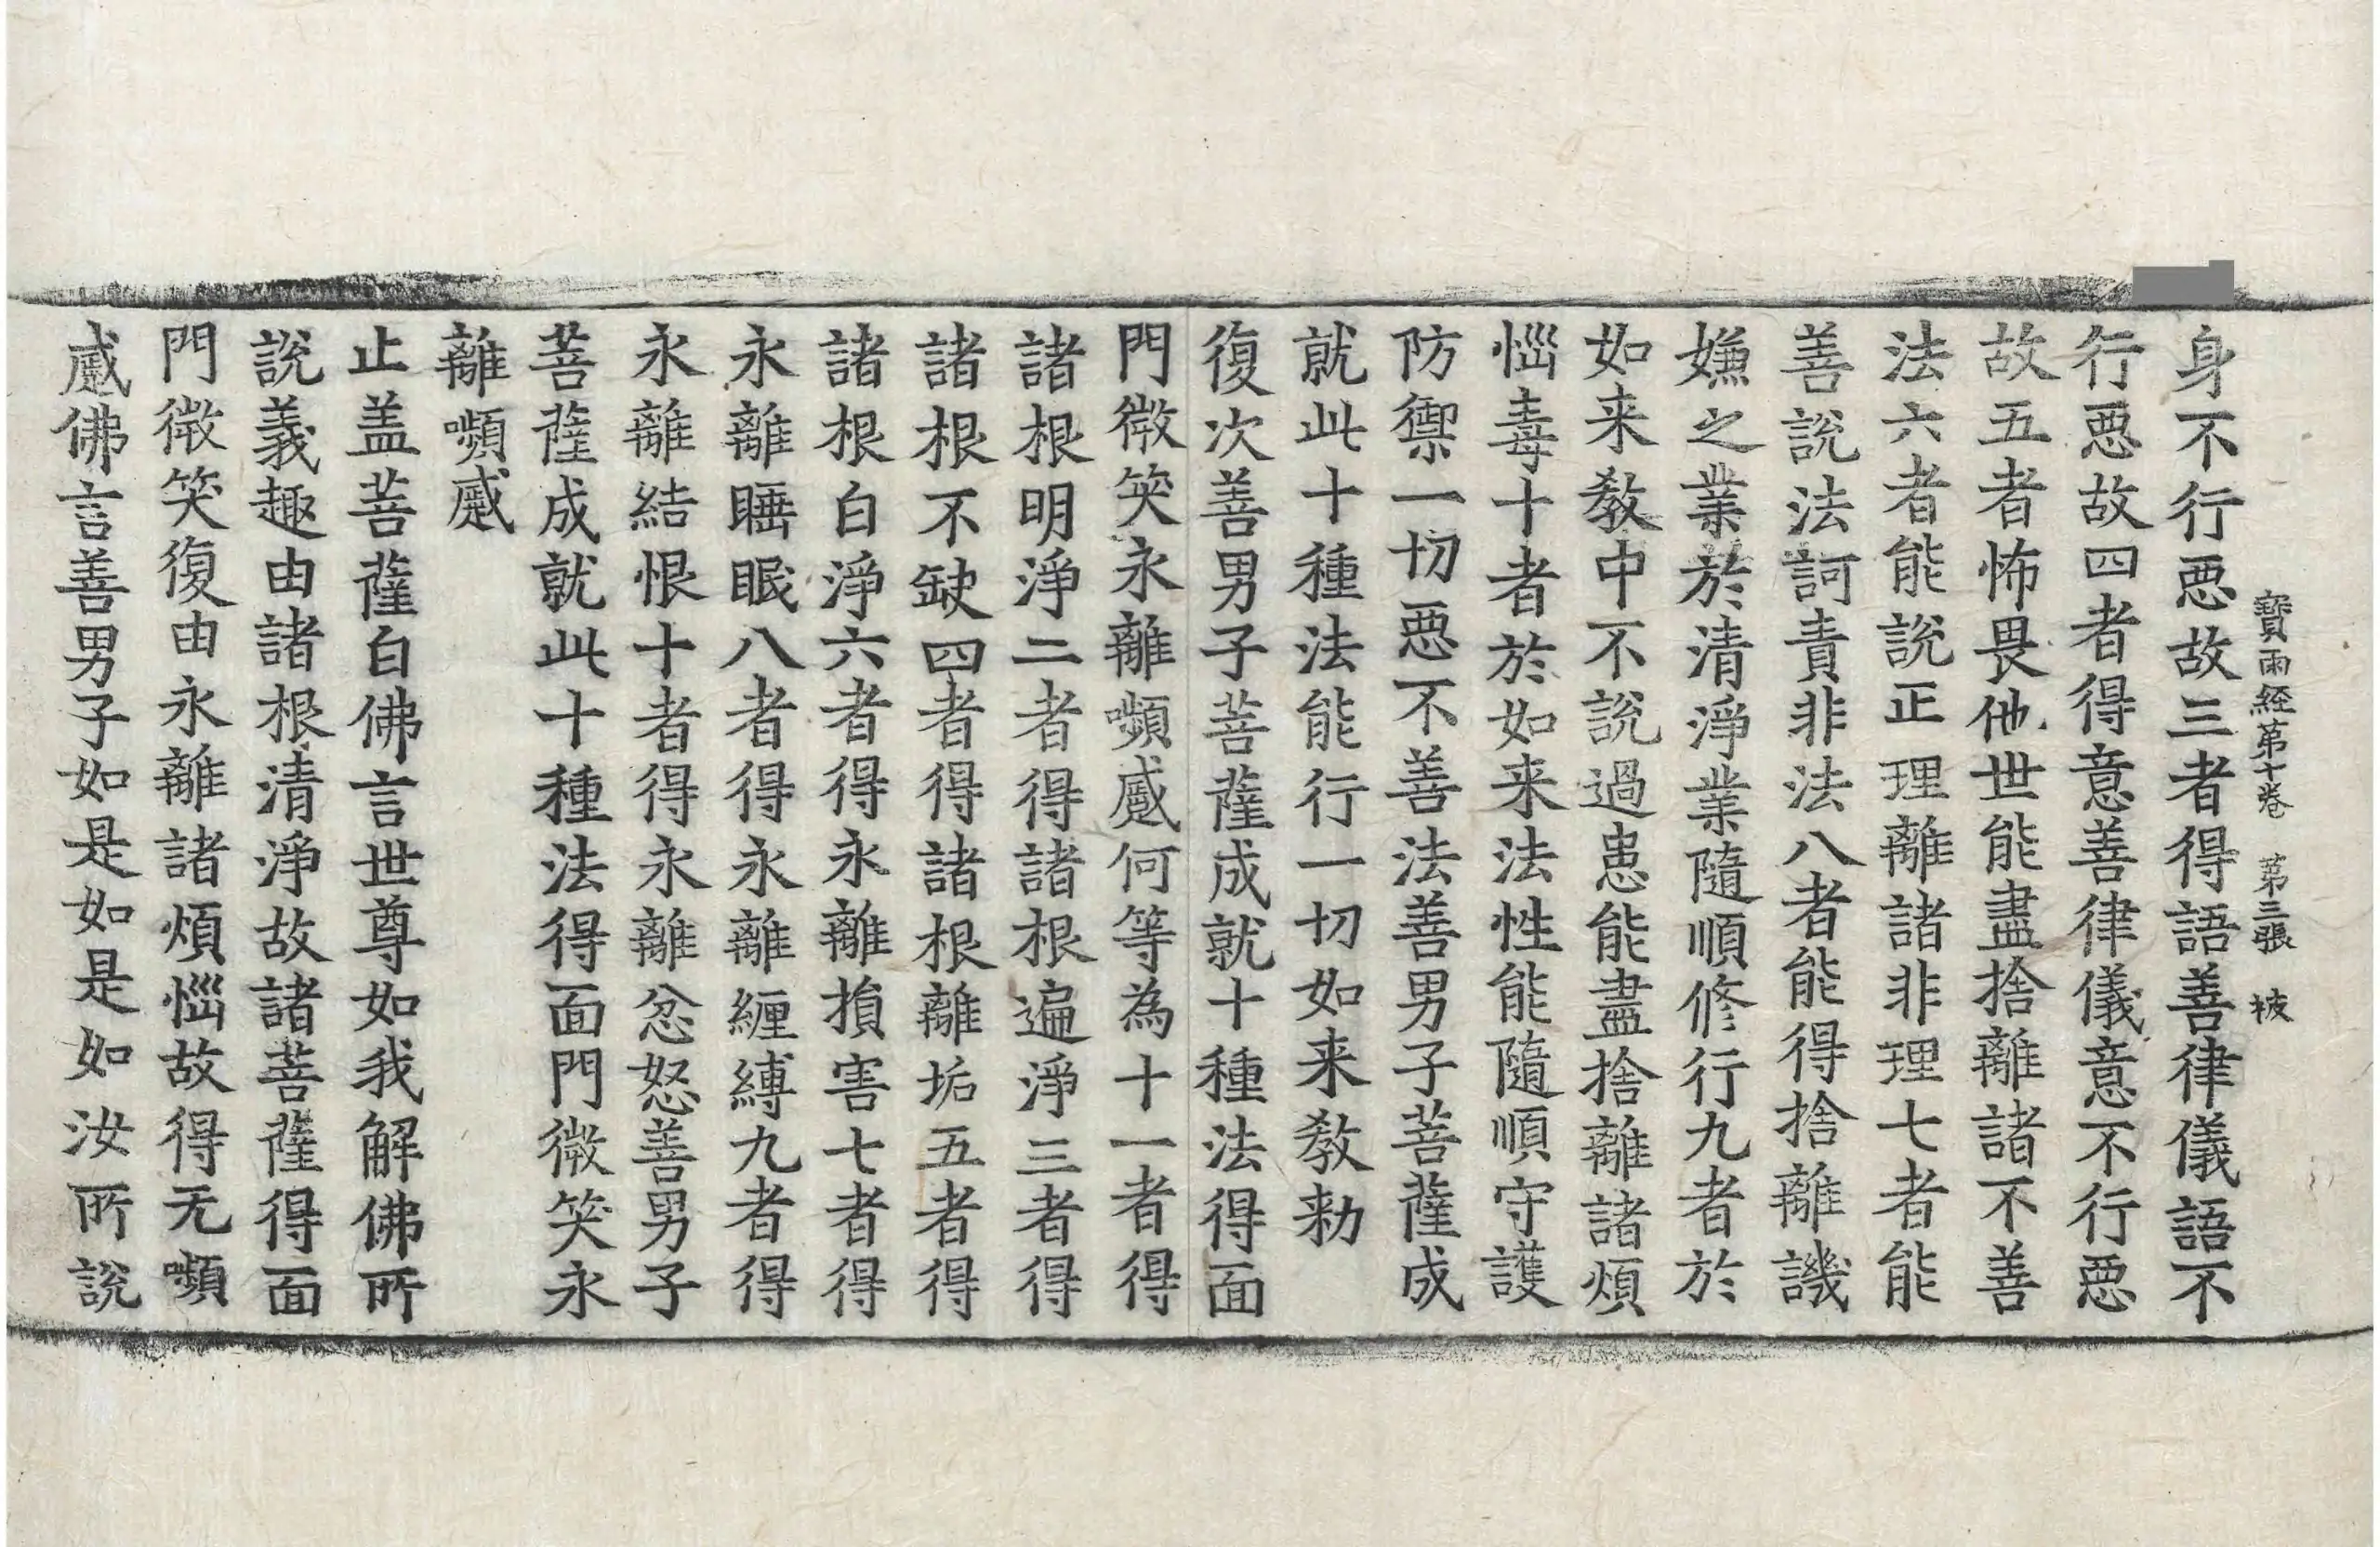 寶雨経苐十卷　苐三張　被
身不行惡故三者得語善律儀語不
行惡故四者得意善律儀意不行惡
故五者怖畏他世能盡捨離諸不善
法六者能說正理離諸非理七者能
善說法訶責非法八者能得捨離譏
嫌之業於清淨業隨順修行九者於
如来教中不說過患能盡捨離諸煩
惱毒十者於如来法性能隨順守護
防禦一切惡不善法善男子菩薩成
就此十種法能行一切如来教勑
復次善男子菩薩成就十種法得面
門微笑永離嚬蹙何等為十一者得
諸根明淨二者得諸根遍淨三者得
諸根不缺四者得諸根離垢五者得
諸根白淨六者得永離損害七者得
永離睡眠八者得永離纏縛九者得
永離結恨十者得永離忿怒善男子
菩薩成就此十種法得面門微笑永
離嚬蹙
止盖菩薩白佛言世尊如我解佛所
說義趣由諸根清淨故諸菩薩得面
門微笑復由永離諸煩惱故得无嚬
蹙佛言善男子如是如是如汝所說